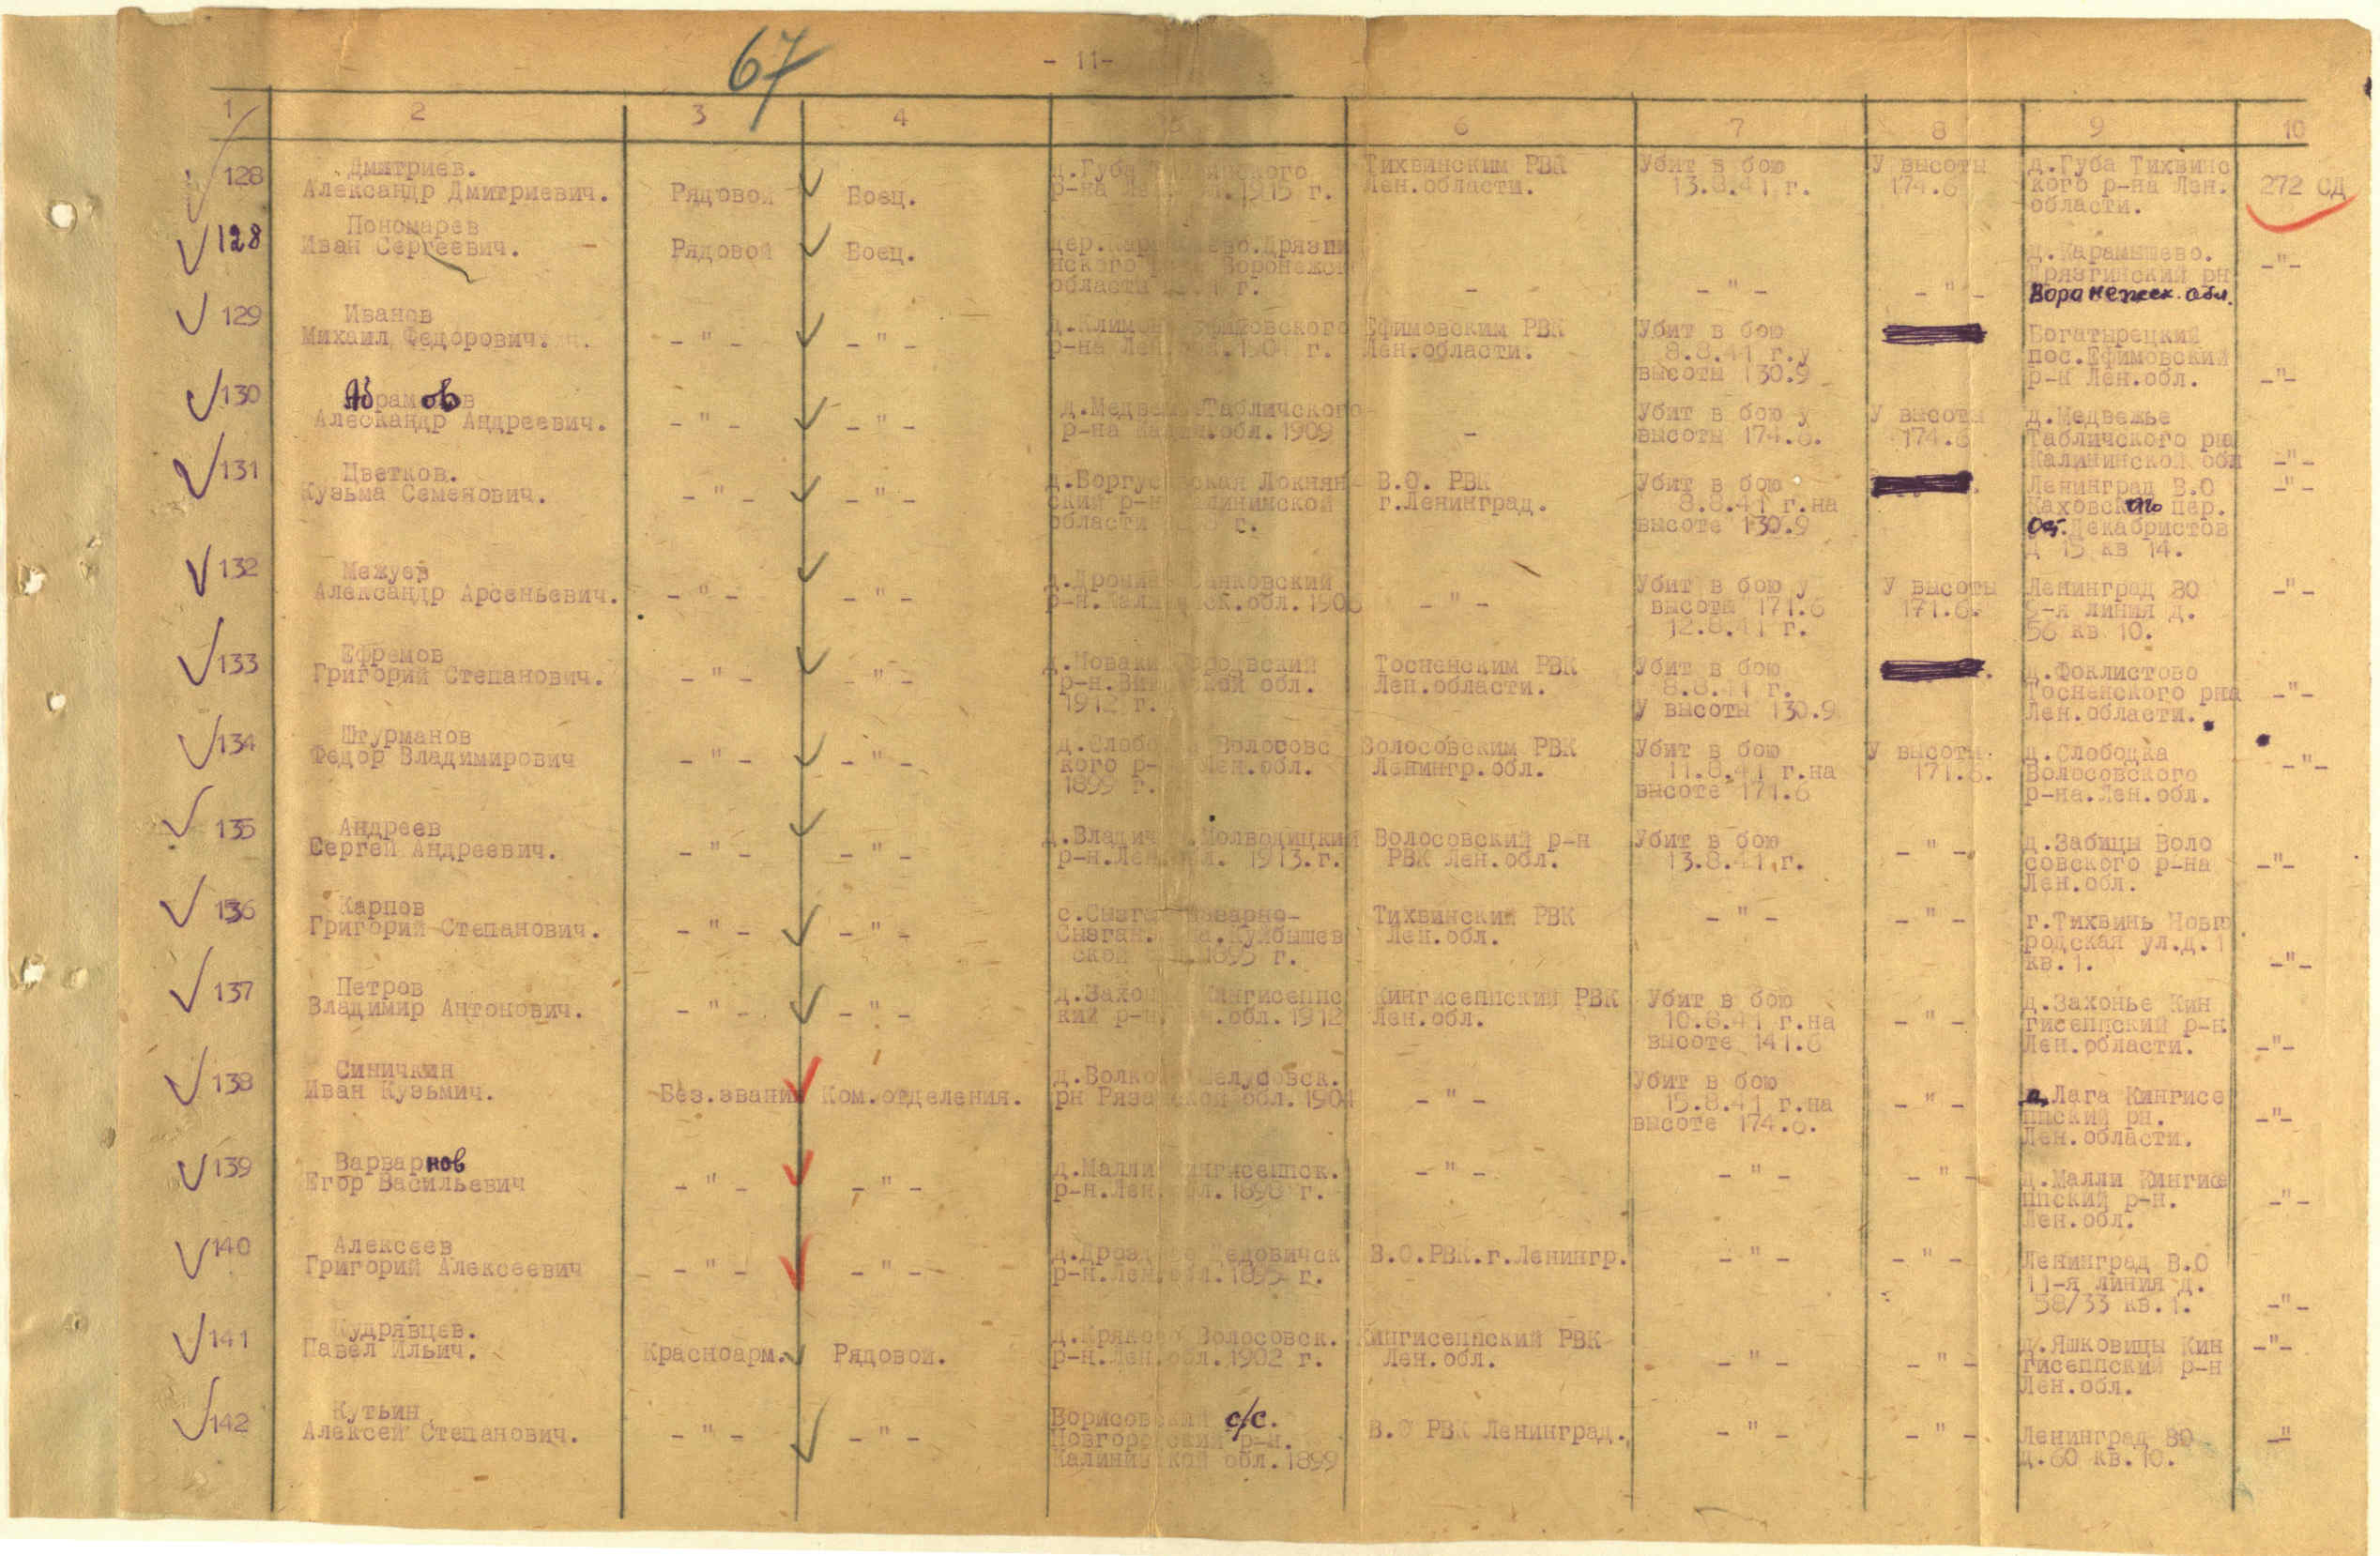 67
- 11 -
1 2 3 4 5 6 7 8 9 10
128
Дмитриев.
Александр Дмитриевич.
Рядовой
Боец.
д.Губа
р-на 1915 г.
Тихвинским РВК
Лен.области.
Убит в бою
13.8.41 г.
У высоты
174.6
д.Губа Тихвинс
кого р-на Лен.
области.
272 СД
128
Пономарев
Иван Сергеевич. -
Рядовой
Боец.
нского Воронежск
области г.
-
- " -
- " -
д.Карамышево.
Дрязгинский рн
Воронежск. обл.
-"-
129
Иванов
Михаил Федорович.
- " -
- " -
р-на Лен 1901 г.
Ефимовским РВК
Лен.области.
Убит в бою
8.8.41 г.у
высоты 130.9
Богатырецкий
пос.Ефимовский
р-н Лен.обл.
-"-
130
Абрамов
Алескандр Андреевич.
- " -
- " -
д.Медвежье Табличского
р-на Калин.обл. 1909
-
Убит в бою у
высоты 174.6.
У высоты
174.6
д.Медвежье
Табличского рна
Калининской обл
-"-
131
Цветков.
Кузьма Семенович.
- " -
- " -
Локнян-
ский р-н Калининской
области г.
В.О. РВК
г.Ленинград.
Убит в бою
8.8.41 г.на
высоте 130.9
Ленинград В.О
Каховского пер.
ост.Декабристов
д 15 кв 14.
-"-
132
Межуев
Александр Арсеньевич.
- " -
- " -
р-н. обл. 1906
- " -
Убит в бою у
высоты 171.6
12.8.41 г.
У высоты
171.6.
Ленинград ВО
линия д.
56 кв 10.
-"-
133
Ефремов
Григорий Степанович.
- " -
- " -
р-н. обл.
1912 г.
Тосненским РВК
Лен.области.
Убит в бою
8.8.41 г.
У высоты 130.9
д.Фоклистово
Тосненского рна
Лен.области.
-"-
134
Штурманов
Федор Владимирович
- " -
- " -
Волосовс
кого р- Лен.обл.
1899 г.
Волосовским РВК
Ленингр.обл.
Убит в бою
11.8.41 г.на
высоте 171.6
У высоты
171.6.
д.Слободка
Волосовского
р-на.Лен.обл.
-"-
135
Андреев
Сергей Андреевич.
- " -
- " -
Молводицкий
р-н.Лен 1913.г.
Волосовский р-н
РВК Лен.обл.
Убит в бою
13.8.41 г.
- " -
д.Забицы Воло
совского р-на
Лен.обл.
-"-
136
Карпов
Григорий Степанович.
- " -
- " -
Базарно-
Сызган. Куйбышев
ской 1895 г.
Тихвинский РВК
Лен.обл.
- " -
- " -
г.Тихвинь Новго
родская ул.д. 1
кв.1.
-"-
137
Петров
Владимир Антонович.
- " -
- " -
д.Захонье Кингисеппс
кий р-н Лен.обл. 1912
Кингисеппский РВК
Лен.обл.
Убит в бою
10.8.41 г.на
высоте 141.6
- " -
д.Захонье Кин
гисеппский р-н.
Лен.области.
-"-
138
Синичкин
Иван Кузьмич.
Без.звания
Ком.отделения.
рн Рязанской обл. 1904
- " -
Убит в бою
15.8.41 г.на
высоте 174.6.
- " -
д.Лага Кингисе
ппский рн.
Лен.области.
-"-
139
Варварнов
Егор Васильевич
- " -
- " -
д.Малли Кингисеппск.
р-н.Лен.обл. 1898 г.
- " -
- " -
- " -
д.Малли Кингисе
ппский р-н.
Лен.обл.
-"-
140
Алексеев
Григорий Алексеевич
- " -
- " -
Дедовичск
р-н.Лен.обл. 1895 г.
В.О.РВК.г.Ленингр.
- " -
- " -
Ленинград В.О
11-я линия д.
58/33 кв.1.
-"-
141
Кудрявцев.
Павел Ильич.
Красноарм.
Рядовой.
Волосовск.
р-н.Лен.обл. 1902 г.
Кингисеппский РВК
Лен.обл.
- " -
- " -
д.Яшковицы Кин
гисеппский р-н
Лен.обл.
-"-
142
Кутьин
Алексей Степанович.
- " -
- " -
Борисовский с/с.
Новгородский р-н.
Калининской обл. 1899
В.О РВК Ленинград.
- " -
- " -
Ленинград ВО
д.60 кв.10.
-"